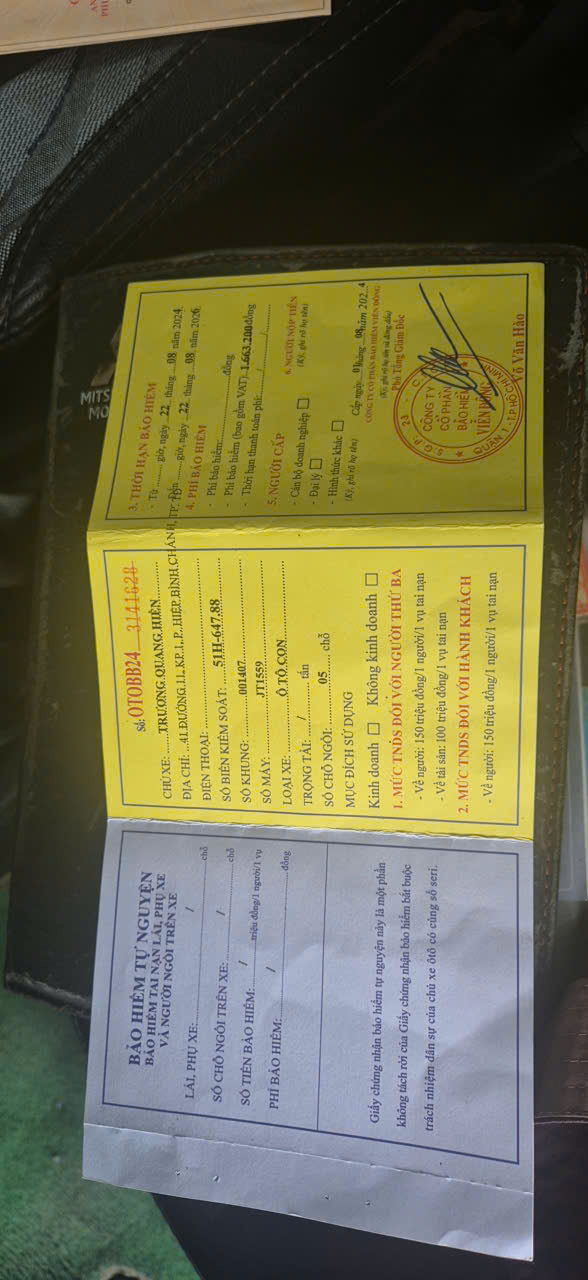 BẢO HIỂM TỰ NGUYỆN
BẢO HIỂM TAI NẠN LÁI, PHỤ XE
VÀ NGƯỜI NGỒI TRÊN XE
LÁI, PHỤ XE: / chỗ
SỐ CHỖ NGỒI TRÊN XE: / chỗ
SỐ TIỀN BẢO HIỂM: / triệu đồng/1 người/1 vụ
PHÍ BẢO HIỂM: / đồng
Giấy chứng nhận bảo hiểm tự nguyện này là một phần
không tách rời của Giấy chứng nhận bảo hiểm bắt buộc
trách nhiệm dân sự của chủ xe ôtô có cùng số seri.
Số: OTOBB24 3141628
CHỦ XE: TRƯƠNG QUANG HIỀN
ĐỊA CHỈ: 41 ĐƯỜNG 11, KP 1, P. HIỆP BÌNH CHÁNH, TP. TĐ
ĐIỆN THOẠI:
SỐ BIỂN KIỂM SOÁT: 51H-647.88
SỐ KHUNG: 001407
SỐ MÁY: JT1559
LOẠI XE: Ô TÔ CON
TRỌNG TẢI: / tấn
SỐ CHỖ NGỒI: 05 chỗ
MỤC ĐÍCH SỬ DỤNG
Kinh doanh Không kinh doanh
1. MỨC TNDS ĐỐI VỚI NGƯỜI THỨ BA
- Về người: 150 triệu đồng/1 người/1 vụ tai nạn
- Về tài sản: 100 triệu đồng/1 vụ tai nạn
2. MỨC TNDS ĐỐI VỚI HÀNH KHÁCH
- Về người: 150 triệu đồng/1 người/1 vụ tai nạn
3. THỜI HẠN BẢO HIỂM
- Từ giờ, ngày 22 tháng 08 năm 2024
- Đến giờ, ngày 22 tháng 08 năm 2026
4. PHÍ BẢO HIỂM
- Phí bảo hiểm: đồng
- Phí bảo hiểm (bao gồm VAT) 1.663.200 đồng
- Thời hạn thanh toán phí: / /
5. NGƯỜI CẤP
- Cán bộ doanh nghiệp
- Đại lý
- Hình thức khác
(Ký, ghi rõ họ tên)
6. NGƯỜI NỘP TIỀN
(Ký, ghi rõ họ tên)
Cấp ngày 01 tháng 08 năm 2024
CÔNG TY CỔ PHẦN BẢO HIỂM VIỄN ĐÔNG
(Ký, ghi rõ họ tên và đóng dấu)
Phó Tổng Giám Đốc
CÔNG TY
CỔ PHẦN
BẢO HIỂM
VIỄN ĐÔNG
QUẬN 1 - T.P HỒ CHÍ MINH
Võ Văn Hảo
MITS
MO